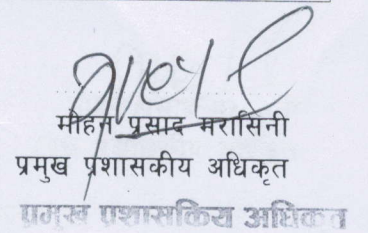 मोहन प्रसाद मरासिनी
प्रमुख प्रशासकीय अधिकृत
प्रमुख प्रशासकिय अधिकृत